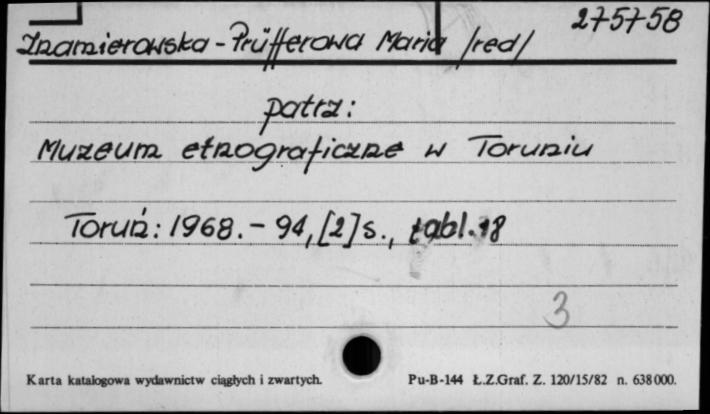 275758
Znamierowska-Prüfferowa Maria /red/
patrz:
Muzeum etnograficzne w Toruniu
Toruń: 1968. - 94, [2] s., tabl. 18
3
Karta katalogowa wydawnictw ciągłych i zwartych.
Pu-B-144 Ł.Z.Graf. Z. 120/15/82 n. 638 000.